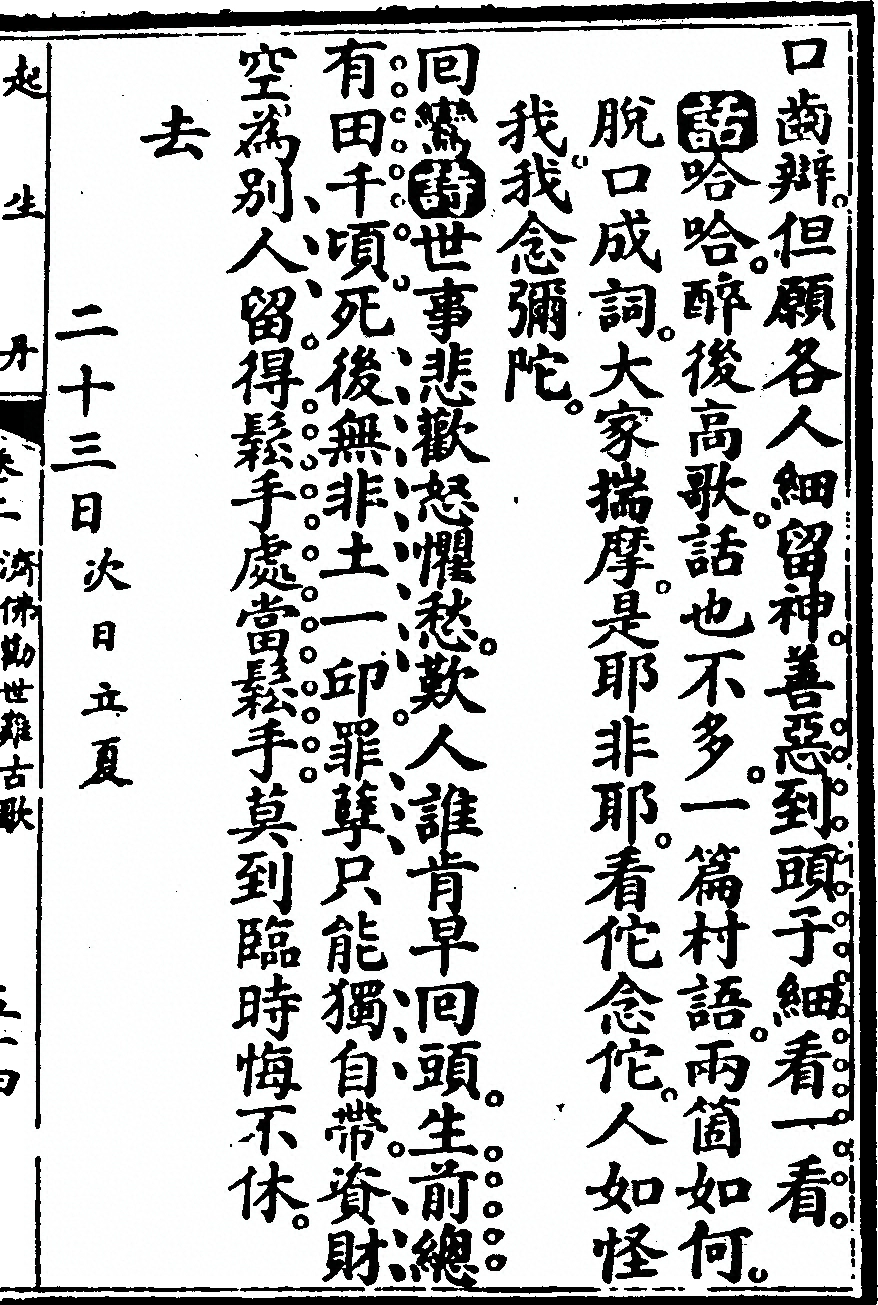 口齒辯。但願各人細留神。善惡到頭子細看一看。
話哈哈。醉後高歌。話也不多。一篇村語。兩箇如何。
脫口成詞。大家揣摩。是耶非耶。看佗念佗。人如怪
我我念彌陀。
回鸞詩世事悲歡怒懼愁。歎人誰肯早回頭。生前總
有田千頃。死後無非土一邱。罪孽只能獨自帶。資財
空為別人留。得鬆手處當鬆手。莫到臨時悔不休。
去
二十三日次日立夏
起生丹
卷二 濟佛勸世難古歌